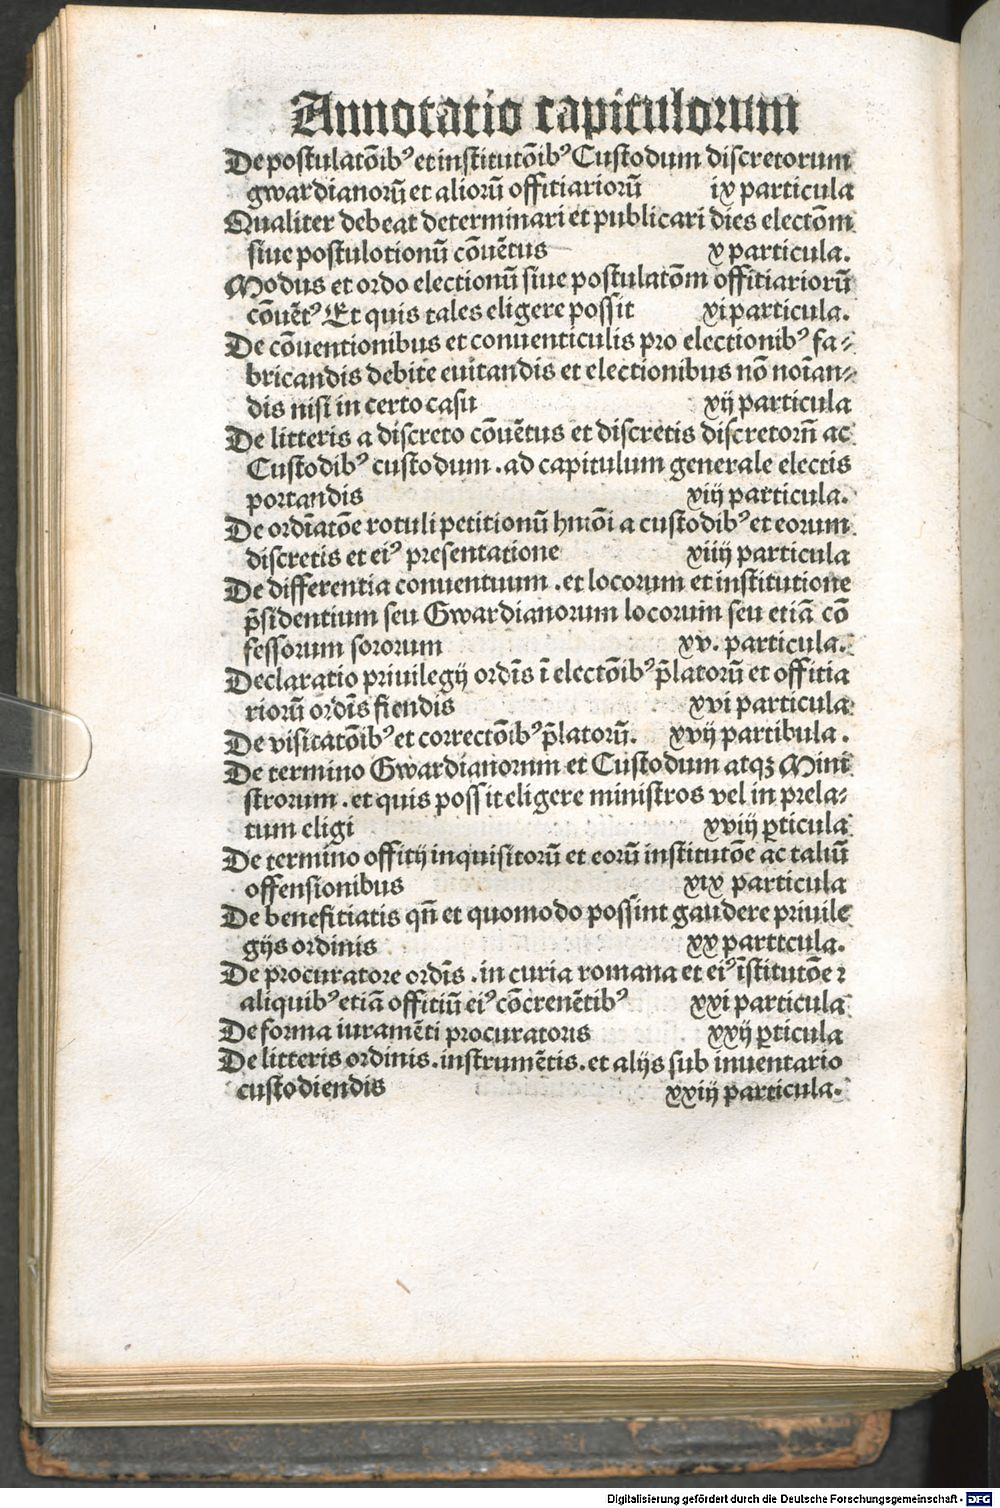 Annotatio capitulorum
De postulatōib⁹ et institutōib⁹ Custodum discretorum
gwardianorū et aliorū offitiariorū ix particula
Qualiter debeat determinari et publicari dies electōm
siue postulotionū cōuētus x particula.
Modus et ordo electionū siue postulatōm offitiariorū
cōuēt⁹ Et quis tales eligere possit xi particula.
De cōuentionibus et conuenticulis pro electionib⁹ fa⸗
bricandis debite euitandis et electionibus nō noīan⸗
dis nisi in certo casu xij particula
De litteris a discreto cōuētus et discretis discretorū ac
Custodib⁹ custodum . ad capitulum generale electis
portandis xiij particula.
De ordīatōe rotuli petitionū hmōi a custodib⁹ et eorum
discretis et ei⁹ presentatione xiiij particula
De differentia conuentuum . et locorum et institutione
p̄sidentium seu Gwardianorum locorum seu etiā cō
fessorum sororum xv. particula.
Declaratio priuilegij ordīs ī electōib⁹ p̄latorū et offitia
riorū ordīs fiendis xvi particula
De visitatōib⁹ et correctōib⁹ p̄latorū. xvij partibula .
De termino Gwardianorum et Custodum atqꝫ Mini
strorum . et quis possit eligere ministros vel in prela⸗
tum eligi xviij ꝑticula
De termino offitij inquisitorū et eorū institutōe ac taliū
offensionibus xix particula
De benefitiatis qn̄ et quomodo possint gaudere priuile
gijs ordinis xx parttcula.
De procuratore ordīs . in curia romana et ei⁹ īstitutōe ꝛ
aliquib⁹ etiā offitiū ei⁹ cōcrenētib⁹ xxi particula
De forma iuramēti procuratoris xxij ꝑticula
De litteris ordinis . instrumētis . et alijs sub inuentario
custodiendis xxiij particula.
Digitalisierung gefördert durch die Deutsche Forschungsgemeinschaft - DFG